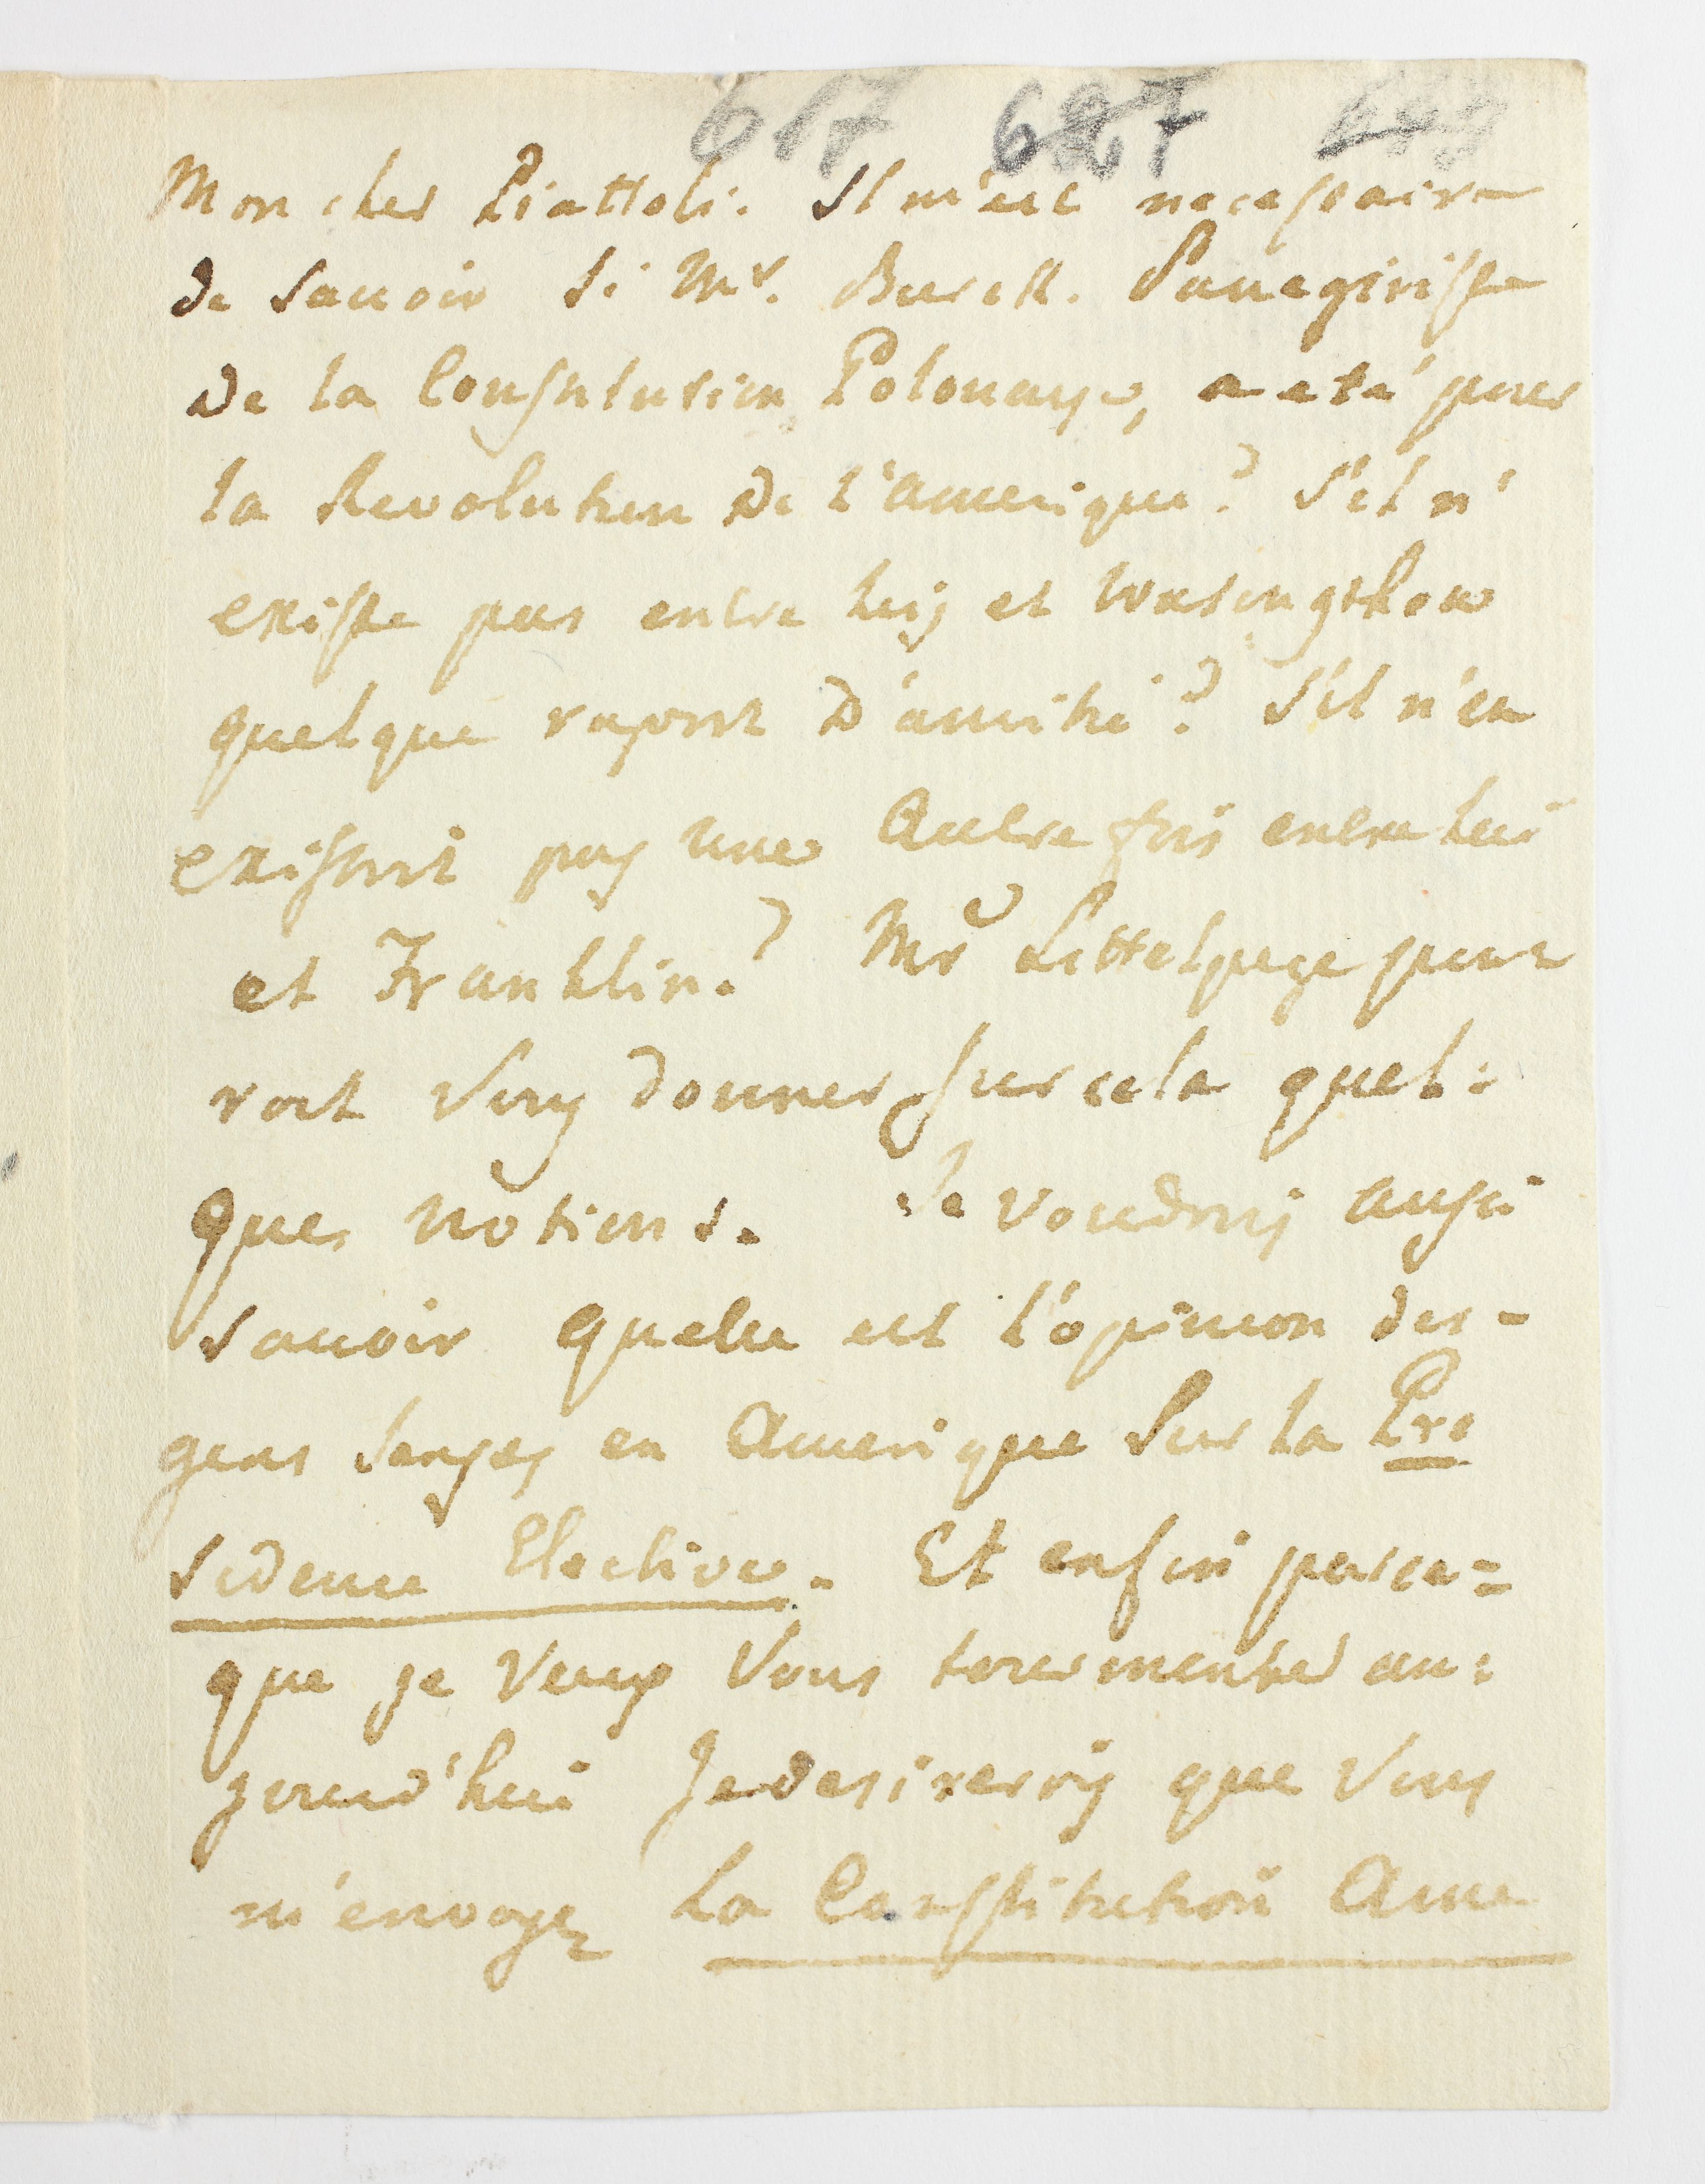 617 687
Mon cher Piattoli. Il m'est necessaire
de sauoir si Mr. Burck. Panegiriste
de la Constitution Polonayse, a eté pour
la Revolution de l'Amerique? S'il n'
existe pas entre luy et Wasingthon
quelque raport d'amitié? S'il n'en
existoit pas une autre fois entre lui
et Franklin? Mr Littelpage pour
roit vous donner sur cela quel:
ques notions. Je voudrois aussi
sauoir quelle est l'opinion des-
gens sensés en Amerique sur la Pre
sidence Elective. Et enfin parce=
que je veux vous tourmenter au:
jourd'hui Je desireroi que vous
m'envoyez La Constitution Ame